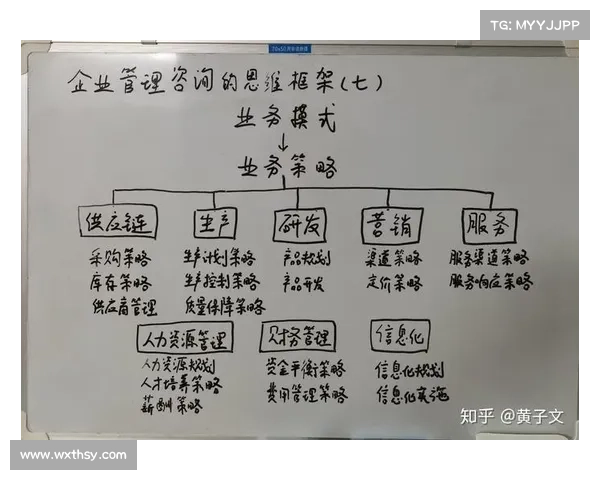 TG: MYYJJPP
企业管理咨询的思维框架(七)
业务模式
↓
业务策略
供应链 生产 研发 营销 服务
采购策略 生产计划策略 产品规划 渠道策略 服务渠道策略
库存策略 生产控制策略 产品开发 定价策略 服务响应策略
供应商管理 质量保障策略
人力资源管理 财务管理 信息化
人力资源规划 资金平衡策略 信息化规划
人才培养策略 费用管理策略 信息化实施
薪酬策略
知乎 @黄子文
www.wxthsy.com